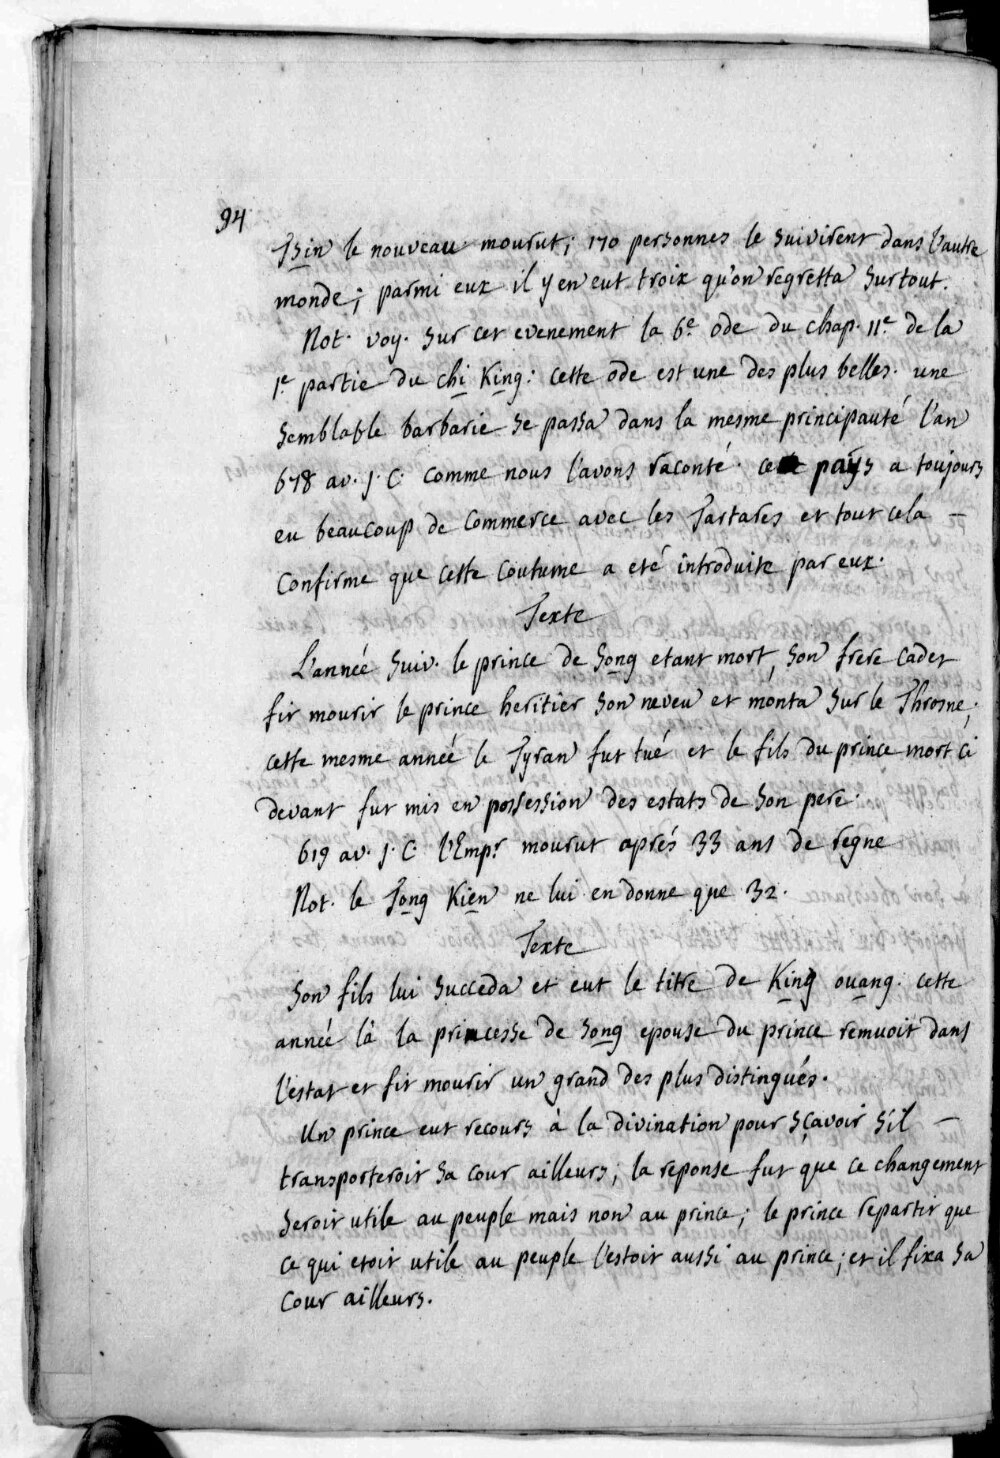 94
Tsin le nouveau mourut; 170 personnes le suivirent dans l'autre
monde; parmi eux il y en eut troix qu'on regretta surtout.
Not. voy. sur cet evenement la 6e ode du chap. 11e de la
1e partie du chi King: cette ode est une des plus belles. une
semblable barbarie se passa dans la mesme principauté l'an
678 av. J. C. comme nous l'avons raconté. ce pays a toujours
eu beaucoup de commerce avec les Tartares et tout cela —
confirme que cette coutume a eté introduite par eux.
Texte
L'année suiv. le prince de Song etant mort, son frere cadet
fit mourir le prince heritier son neveu et monta sur le Throsne;
cette mesme année le Tyran fut tué et le fils du prince mort ci
devant fut mis en possession des estats de son pere.
619 av. J. C. l'Empr mourut aprés 33 ans de regne
Not. le Tong Kien ne lui en donne que 32.
Texte
Son fils lui succeda et eut le titre de King ouang. cette
année là la princesse de Song epouse du prince remuoit dans
l'estat et fit mourir un grand des plus distingués.
Un prince eut recours à la divination pour sçavoir s'il —
transporteroit sa cour ailleurs; la reponse fut que ce changement
seroit utile au peuple mais non au prince; le prince repartit que
ce qui etoit utile au peuple l'estoit aussi au prince; et il fixa sa
cour ailleurs.